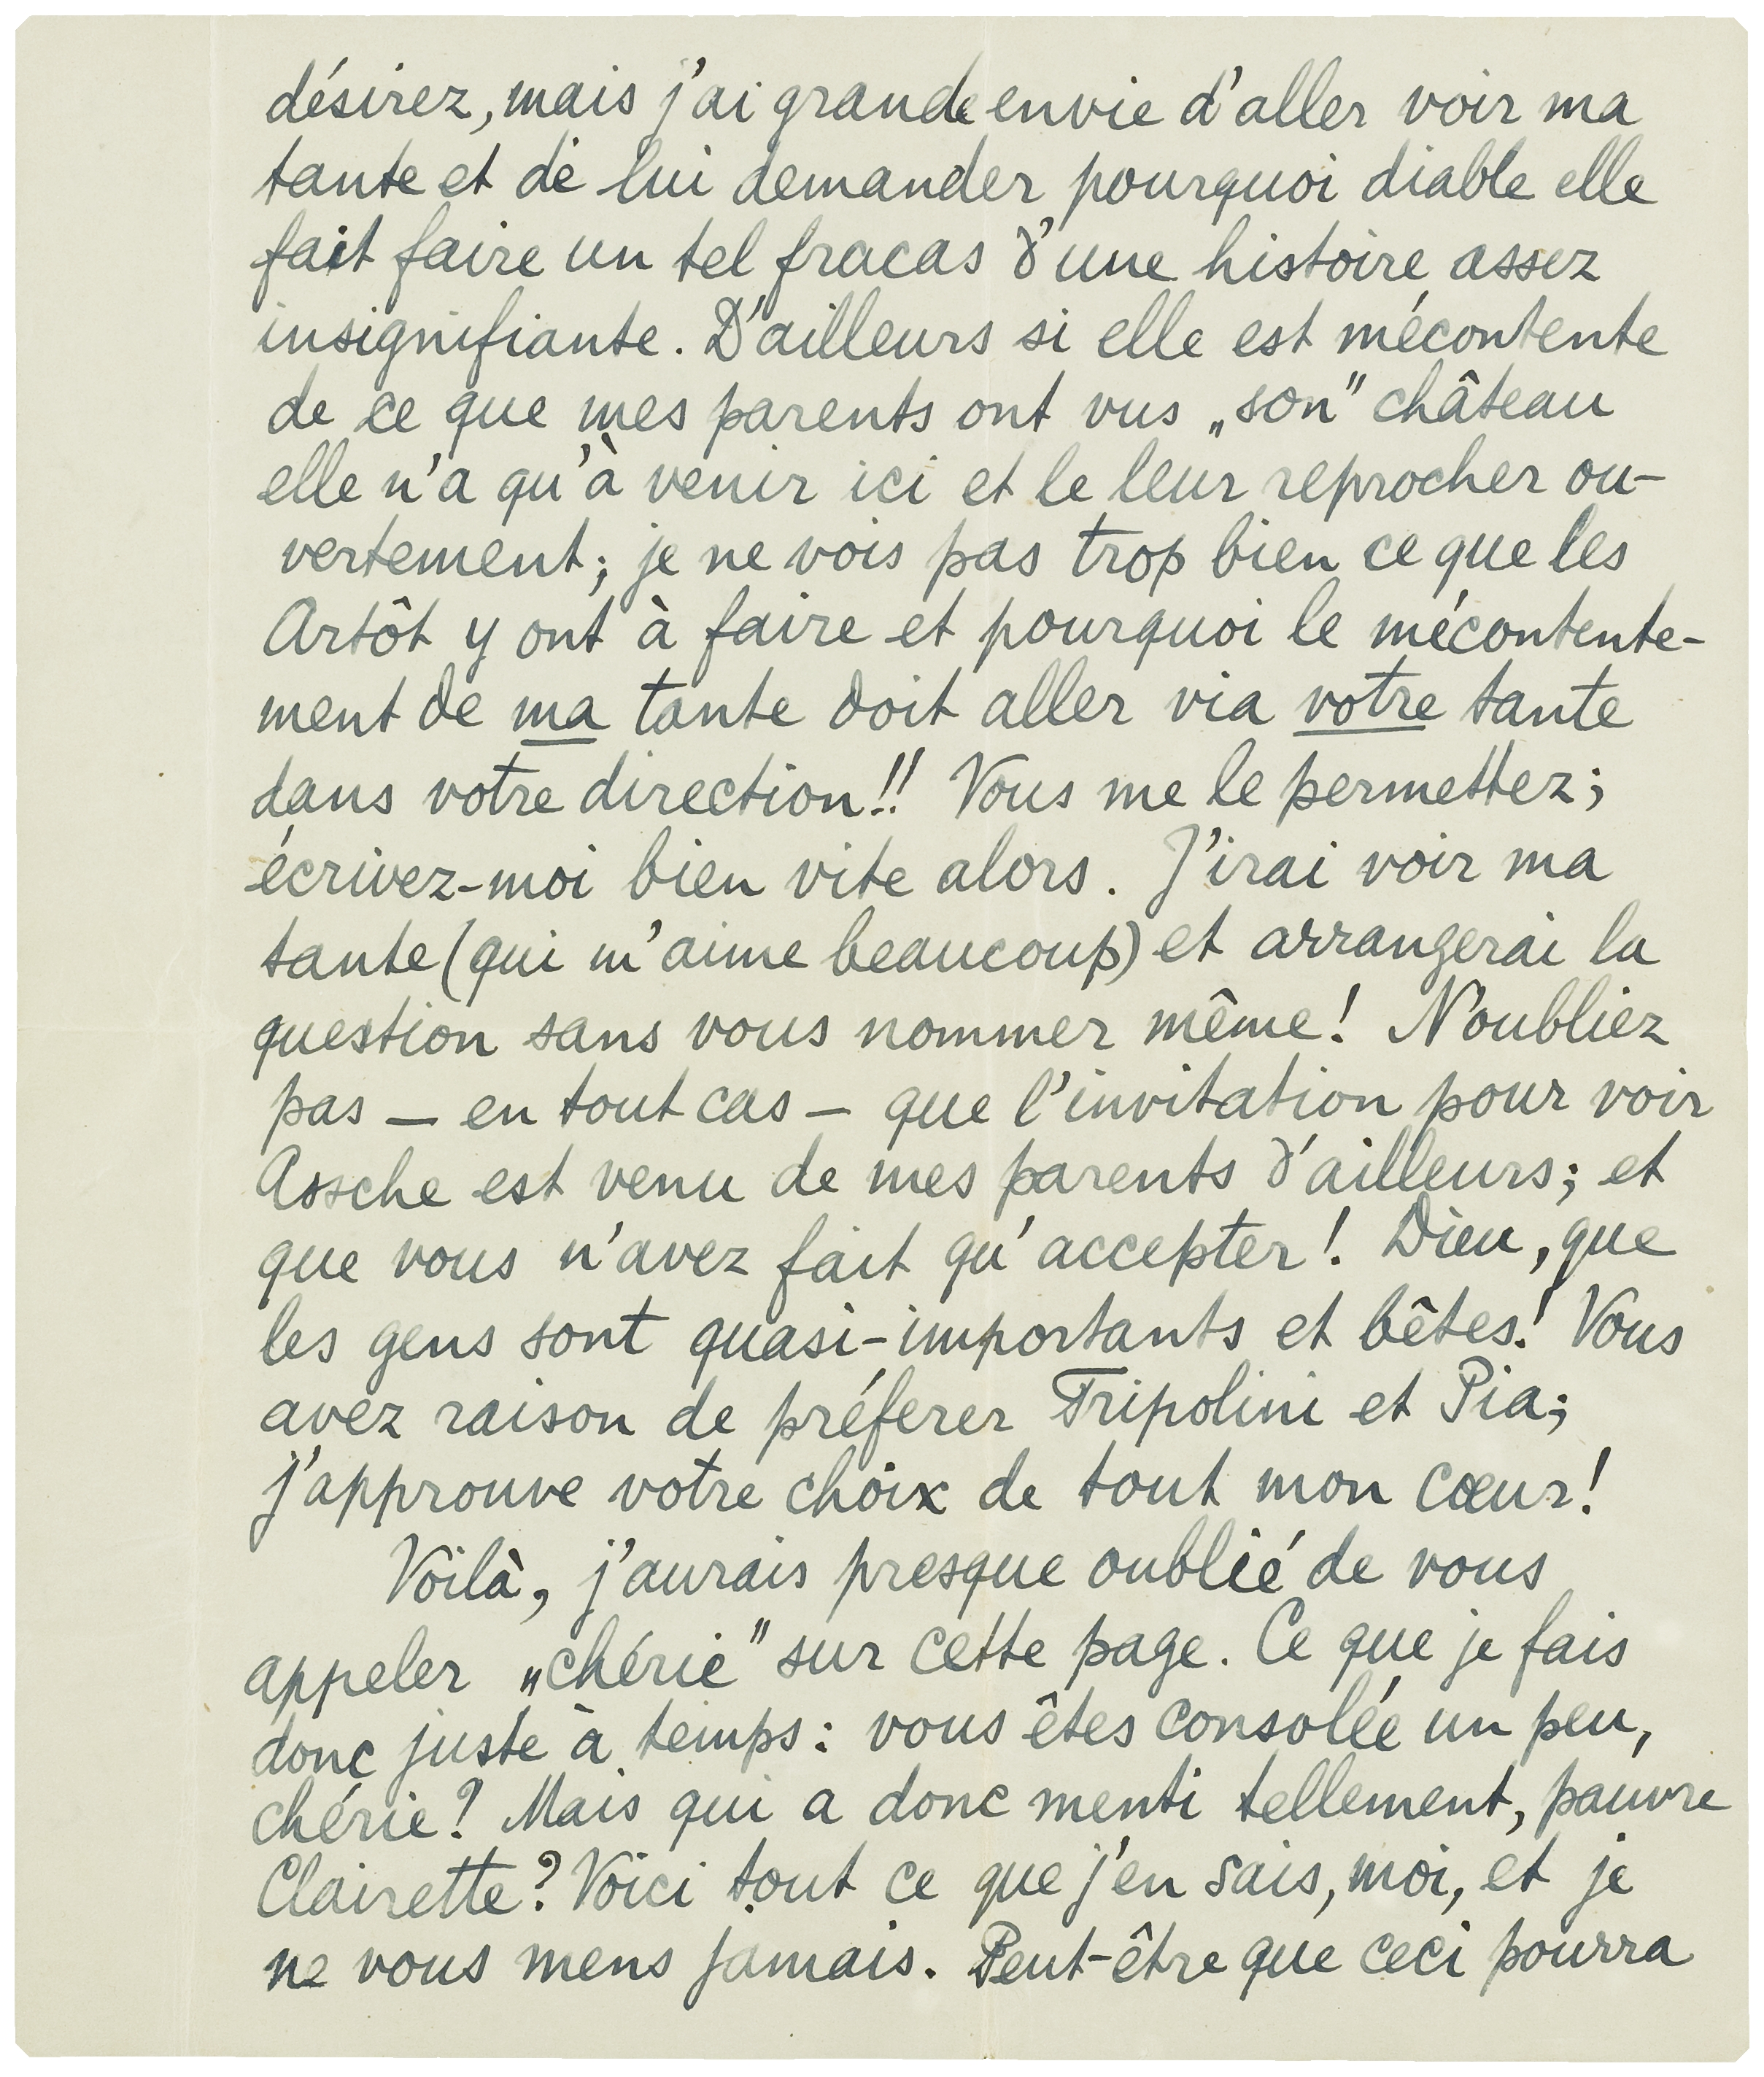 désirez, mais j'ai grande envie d'aller voir ma
tante et de lui demander pourquoi diable elle
fait faire un tel fracas d'une histoire assez
insignifiante. D'ailleurs si elle est mécontente
de ce que mes parents ont vus „son" château
elle n'a qu'à venir ici et le leur reprocher ou-
vertement; je ne vois pas trop bien ce que les
Artôt y ont à faire et pourquoi le mécontente-
ment de ma tante doit aller via votre tante
dans votre direction!! Vous me le permettez;
écrivez-moi bien vite alors. J'irai voir ma
tante (qui m'aime beaucoup) et arrangerai la
question sans vous nommer même! N'oubliez
pas — en tout cas — que l'invitation pour voir
Assche est venu de mes parents d'ailleurs; et
que vous n'avez fait qu'accepter! Dieu, que
les gens sont quasi-importants et bêtes! Vous
avez raison de préferer Tripolini et Pia;
j'approuve votre choix de tout mon cœur!
Voilà, j'aurais presque oublié de vous
appeler „chérie" sur cette page. Ce que je fais
donc juste à temps: vous êtes consolée un peu,
chérie? Mais qui a donc menti tellement, pauvre
Clairette? Voici tout ce que j'en sais, moi, et je
ne vous mens jamais. Peut-être que ceci pourra